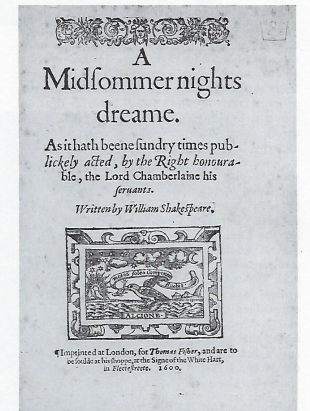 A
Midſommer nights
dreame.
As it hath beene ſundry times pub-
lickely acted, by the Right honoura-
ble, the Lord Chamberlaine his
ſeruants.
Written by William Shakeſpeare.
ALCIONE.
¶ Imprinted at London, for Thomas Fiſher, and are to
be ſoulde at his ſhoppe, at the Signe of the White Hart,
in Fleeteſtreete. 1600.